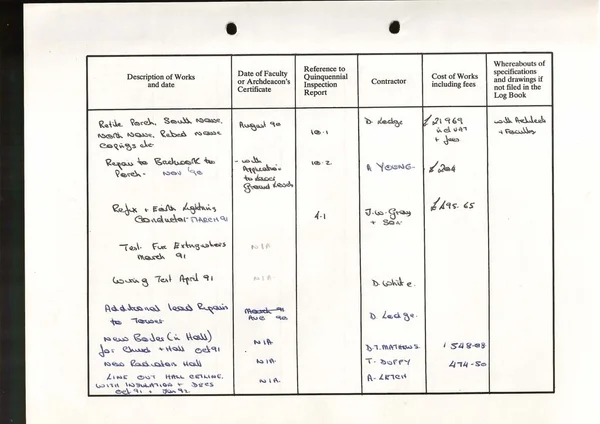 Description of Works
and date
Date of Faculty
or Archdeacon's
Certificate
Reference to
Quinquennial
Inspection
Report
Contractor
Cost of Works
including fees
Whereabouts of
specifications
and drawings if
not filed in the
Log Book
Retile Porch, South Nave,
North Nave, Rebed Nave
Copings etc
August 90
10.1
D. Lodge
£21969
incl VAT
+ fees
with Architect
+ Faculty
Repair to Brickwork to
Porch - Nov '90
- with
Application
to
Ground
10.2
A YOUNG.
£204
Refix + Earth Lightning
Conductor - MARCH 91
4.1
J.W. Gray
+ Son.
£495.65
Test Fire Extinguishers
March 91
N/A
Wiring Test April 91
N/A
D. White.
Additional Lead Repairs
to Tower
March 91
AUG 90
D Lodge.
New Boiler (in Hall)
for Church + Hall Oct 91
N/A
D.J. MATHEWS
1548-08
New Radiator Hall
N/A
T. DUFFY
474-50
LINE OUT HALL CEILING
WITH INSULATION + DECS
Oct 91 + Jan 92
N/A
A. LETCH